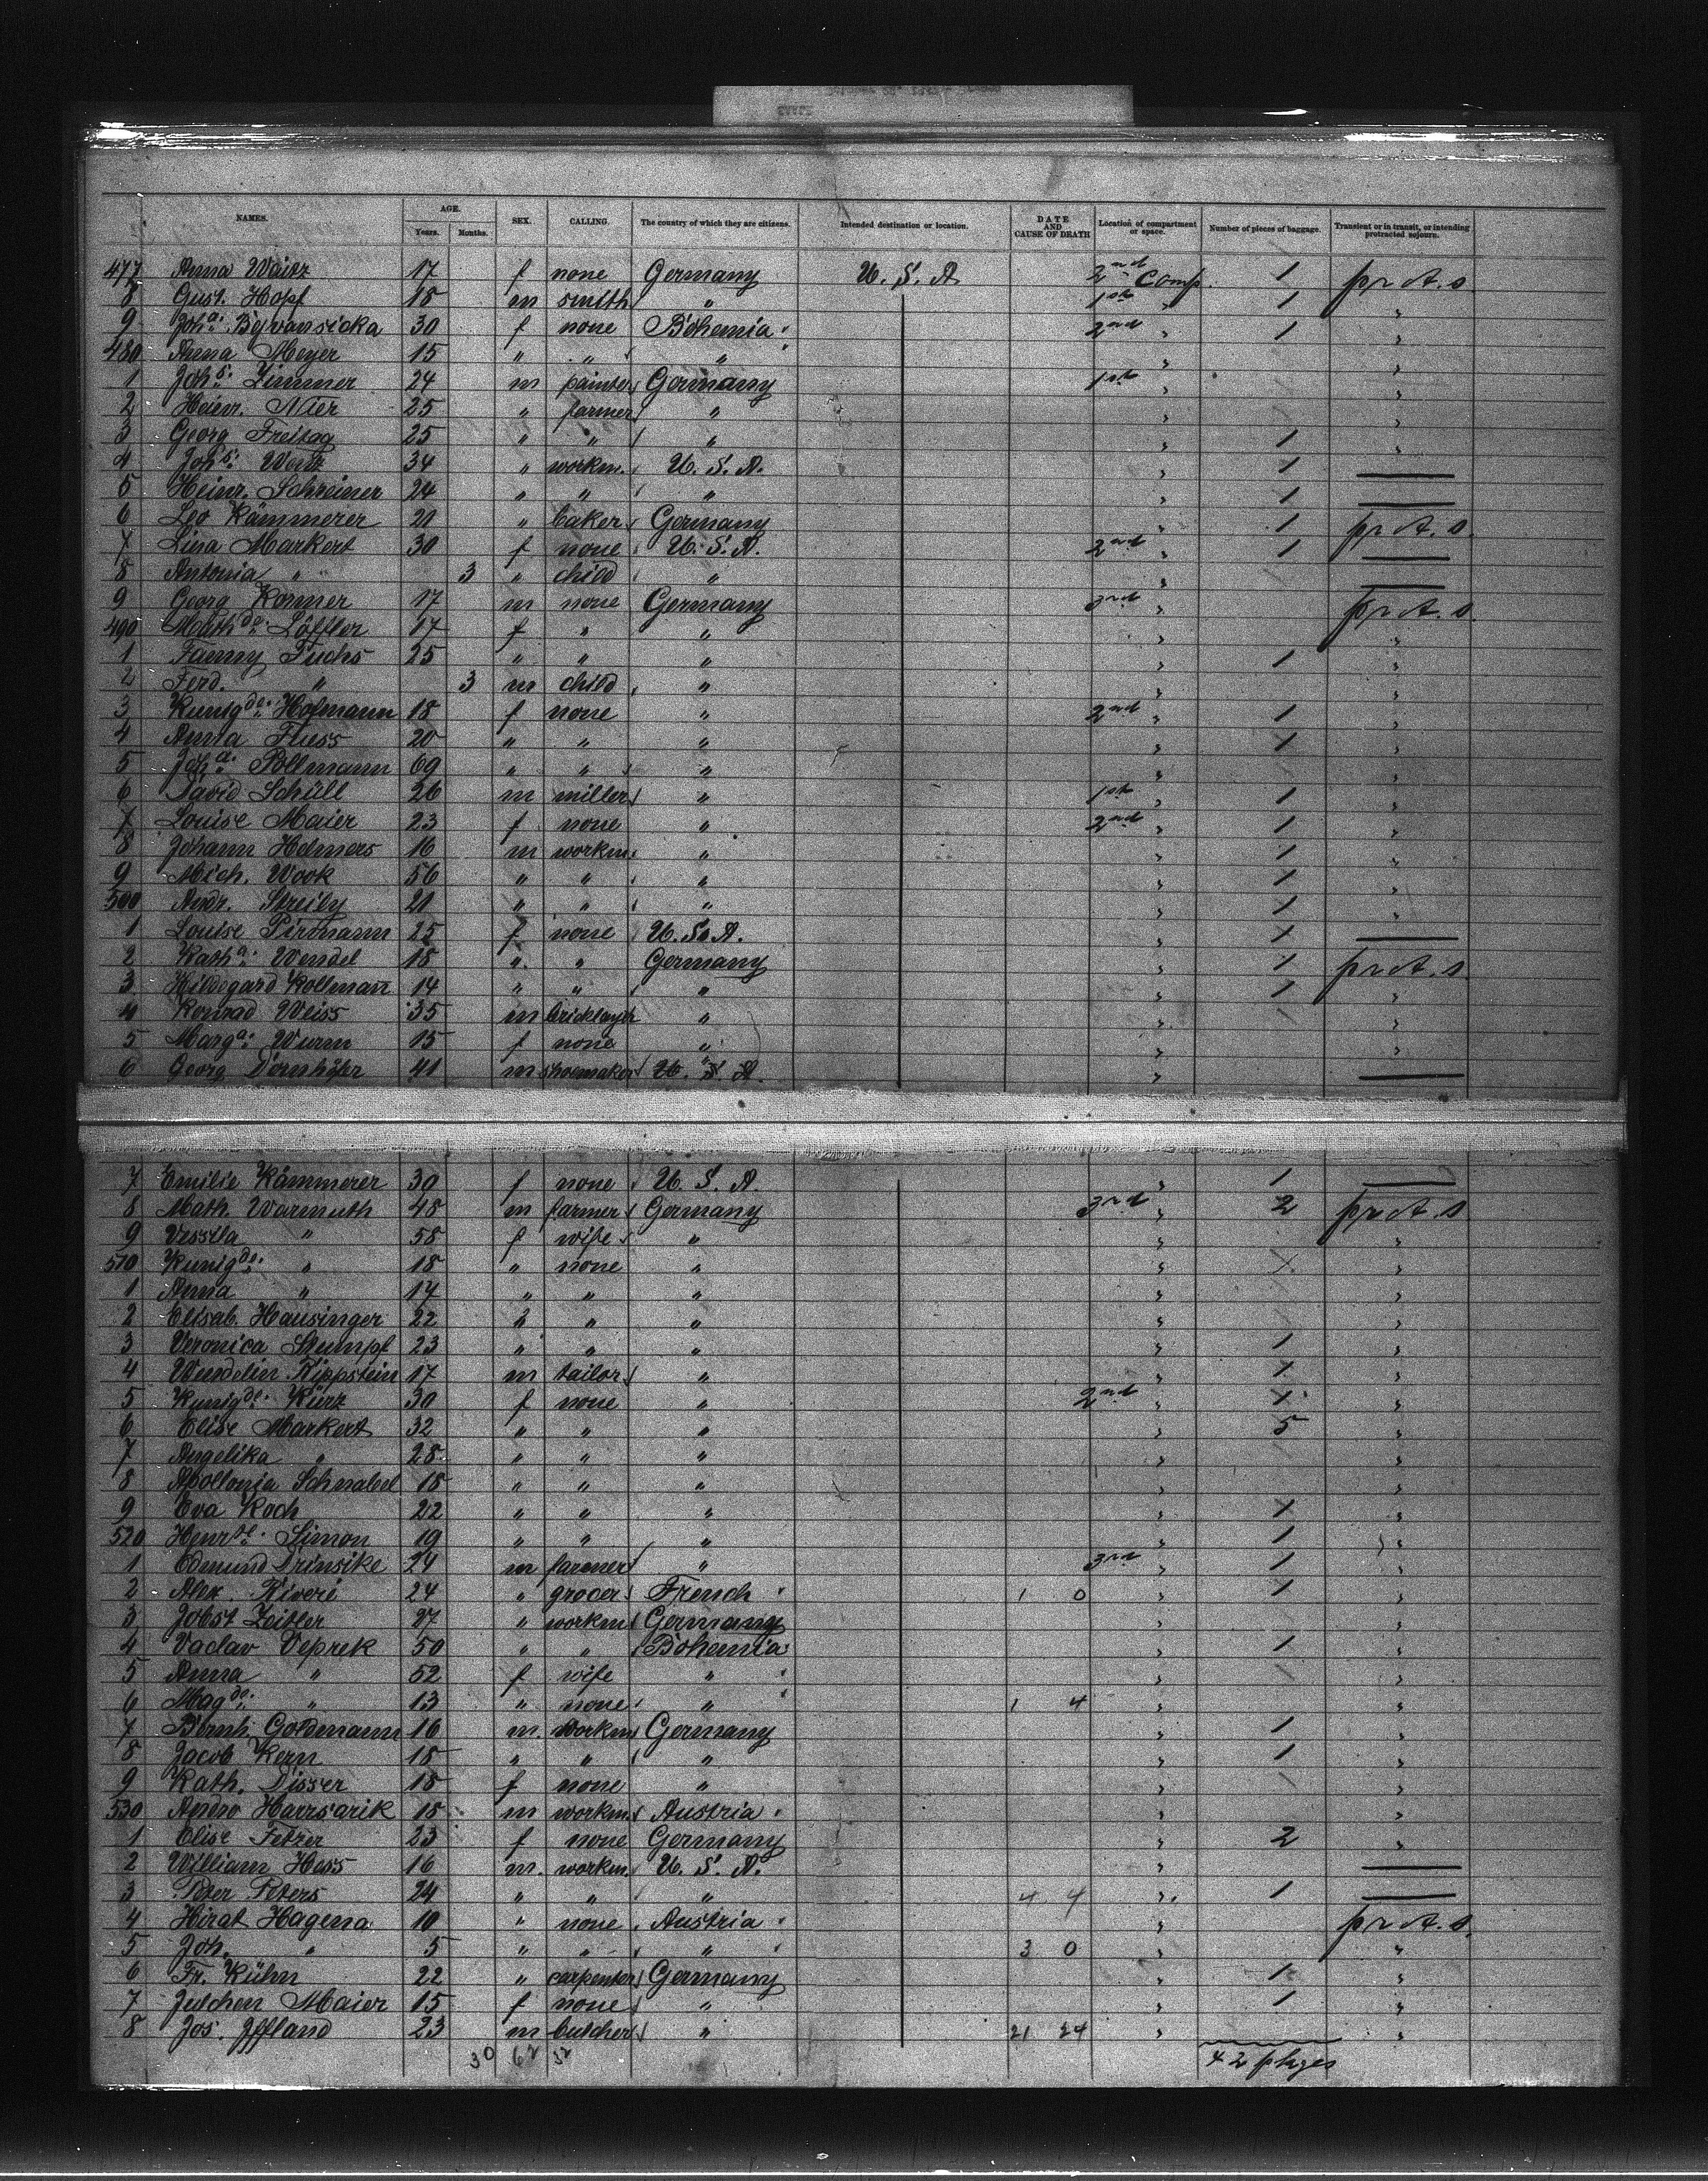 NAMES. AGE. Years. Months. SEX. CALLING. The country of which they are citizens. Intended destination or location. DATE AND CAUSE OF DEATH Location of compartment or space. Number of pieces of baggage. Transient or in transit, or intending protracted sojourn.
477 Anna Waitz 17 f none Germany U. S. A 2nd Comp. 1 pr. A. s
8 Gust. Hopf 18 m smith " 1st " 1 "
9 Joha. Byvansicka 30 f none Bohemia 2nd " 1 "
480 Anna Meyer 15 " " " " "
1 Johs. Zimmer 24 m painter Germany 1st " "
2 Heinr. Nier 25 " farmer " " "
3 Georg Freitag 25 " " " " 1 "
4 Johs. Wentz 34 " workm. U. S. A. " 1 —
5 Heinr. Schreiner 24 " " " " 1 —
6 Leo Kämmerer 21 " baker Germany " 1 pr. A. s.
7 Lina Markert 30 f none U. S. A. 2nd " 1 —
8 Antonia " 3 " child " " —
9 Georg Kormer 17 m none Germany 3rd " pr. A. s.
490 Mathde. Löffler 17 f " " " "
1 Fanny Fuchs 25 " " " " 1 "
2 Ferd. " 3 m child " " "
3 Kunigde. Hofmann 18 f none " 2nd " 1 "
4 Anna Fluss 20 " " " " 1 "
5 Joha. Pollmann 69 " " " " "
6 David Schüll 26 m miller " 1st " 1 "
7 Louise Maier 23 f none " 2nd " 1 "
8 Johann Helmers 16 m workm. " " 1 "
9 Mich. Wook 56 " " " " 1 "
500 Andr. Streily 21 " " " " 1 "
1 Louise Pirmann 25 f none U. S. A. " 1 —
2 Katha. Wendel 18 " " Germany " 1 pr. A. s
3 Hildegard Kollmann 14 " " " " 1 "
4 Konrad Weiss 35 m bricklayer " " "
5 Marga. Wurm 15 f none " " "
6 Georg Dornhöfer 41 m shoemaker U. S. A. " —
7 Emilie Kämmerer 30 f none U. S. A. " 1 —
8 Math. Warmuth 48 m farmer Germany 3rd " 2 pr. A. s
9 " 58 f wife " " "
510 Kunigde. " 18 " none " " 1 "
1 Anna " 14 " " " " "
2 Elisab. Hausinger 22 " " " " "
3 Veronica Stumpf 23 " " " " 1 "
4 Wendelin Rippstein 17 m tailor " " 1 "
5 Kunigde. Kürz 30 f none " 2nd " 1 "
6 Elise Markert 32 " " " " 5 "
7 Angelika " 28 " " " " "
8 Apollonia Schnabel 18 " " " " "
9 Eva Koch 22 " " " " 1 "
520 Henrte. Simon 19 " " " " 1 "
1 Edmund Drinsike 24 m farmer " 3rd " 1 "
2 Alex Riveré 24 " grocer French 1 0 " 1 "
3 Jobst Zeitler 27 " workm. Germany " "
4 Vaclav Veprek 50 " " Bohemia " 1 "
5 Anna " 52 f wife " " "
6 Magde. " 13 " none " 1 4 " "
7 Bernh. Goldmann 16 m. workm Germany " 1 "
8 Jacob Kern 18 " " " " 1 "
9 Kath. Disser 18 f none " " "
530 Andro Harzsarik 18 m workm. Austria " "
1 Elise Fetzer 23 f none Germany " 2 "
2 William Hess 16 m. workm. U. S. A. " —
3 Peter Peters 24 " " " 4 4 " 1 —
4 Hirat Hagena 10 " none Austria " pr. A. s
5 Joh. " 5 " " " 3 0 " "
6 Fr. Kühn 22 " carpenter Germany " 1 "
7 Julchen Maier 15 f none " " 1 "
8 Jos. Iffland 23 m butcher " 21 24 " "
30 62 52 42 pkges